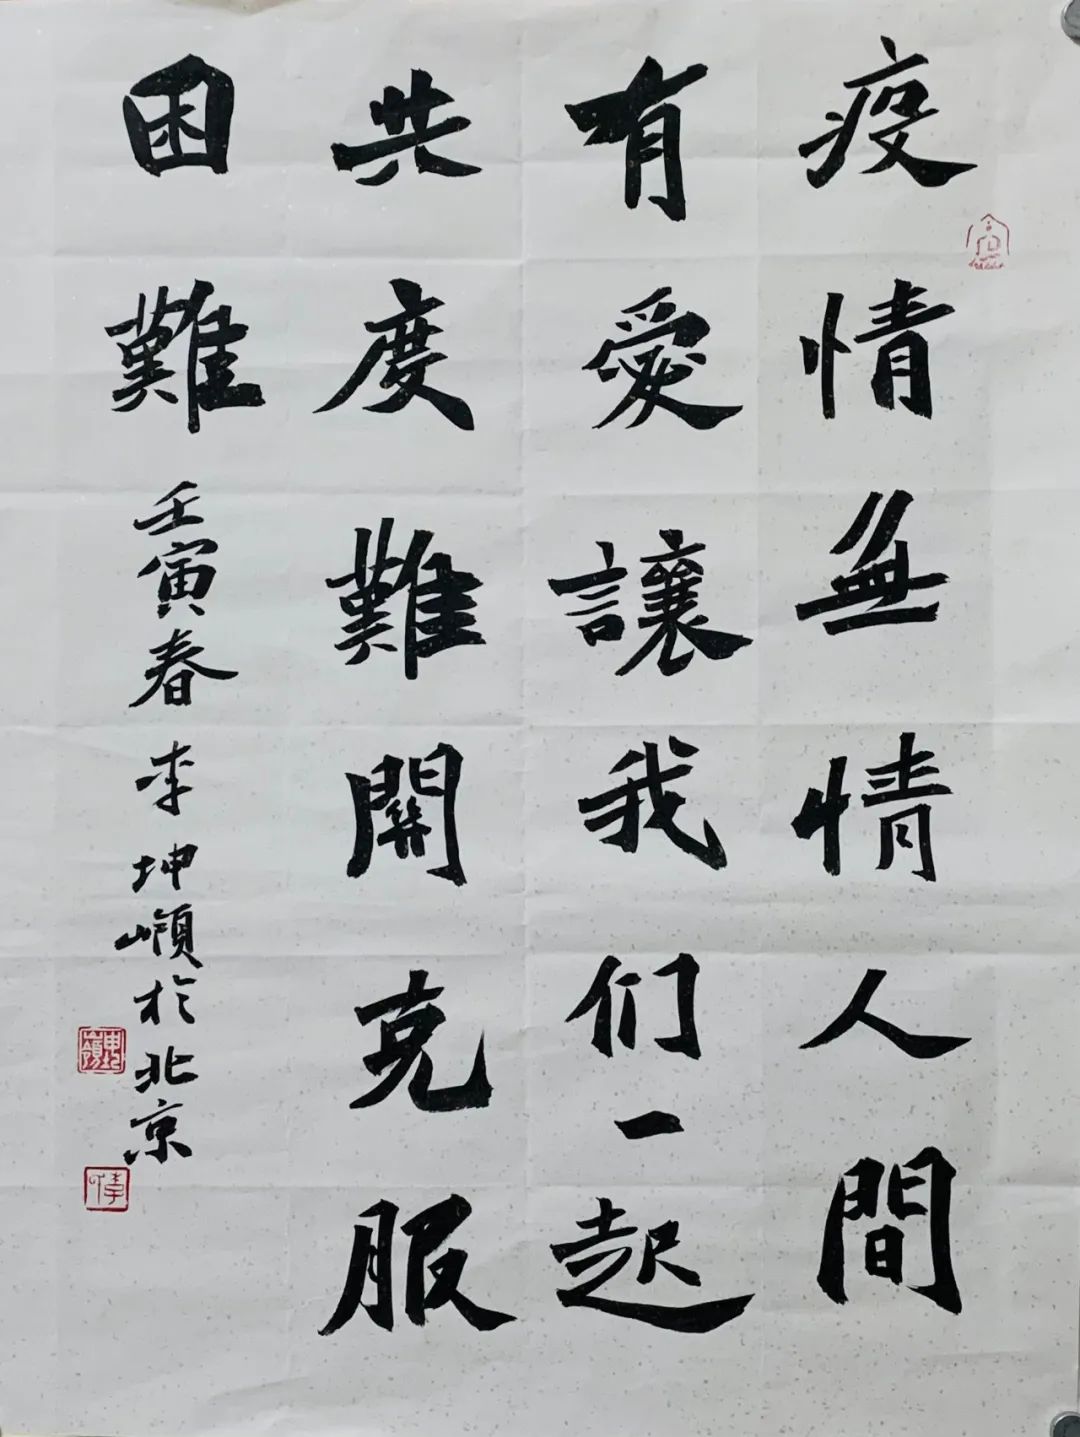 疫情無情人間
有愛讓我们一起
共度難關克服
困難
壬寅春 李坤嶺於北京